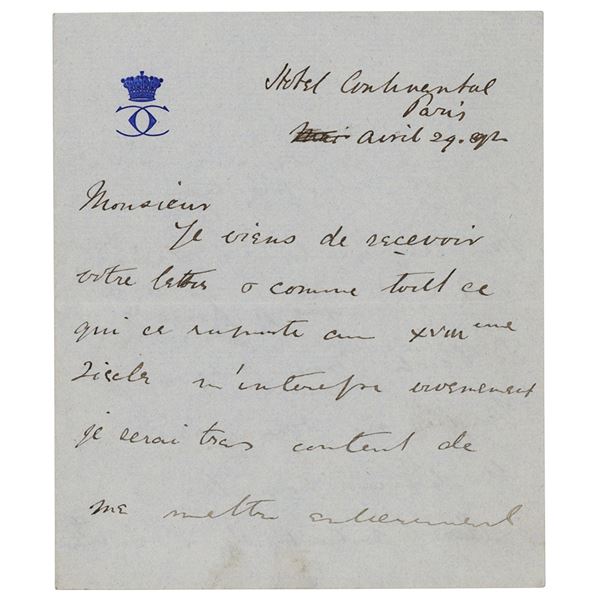 Hotel Continental
Paris
Mai Avril 29. 92
Monsieur
Je viens de recevoir
votre lettre & comme tout ce
qui ce raporte au XVIII eme
Siecle m'interesse vivement
je serai tres content de
me mettre entierement